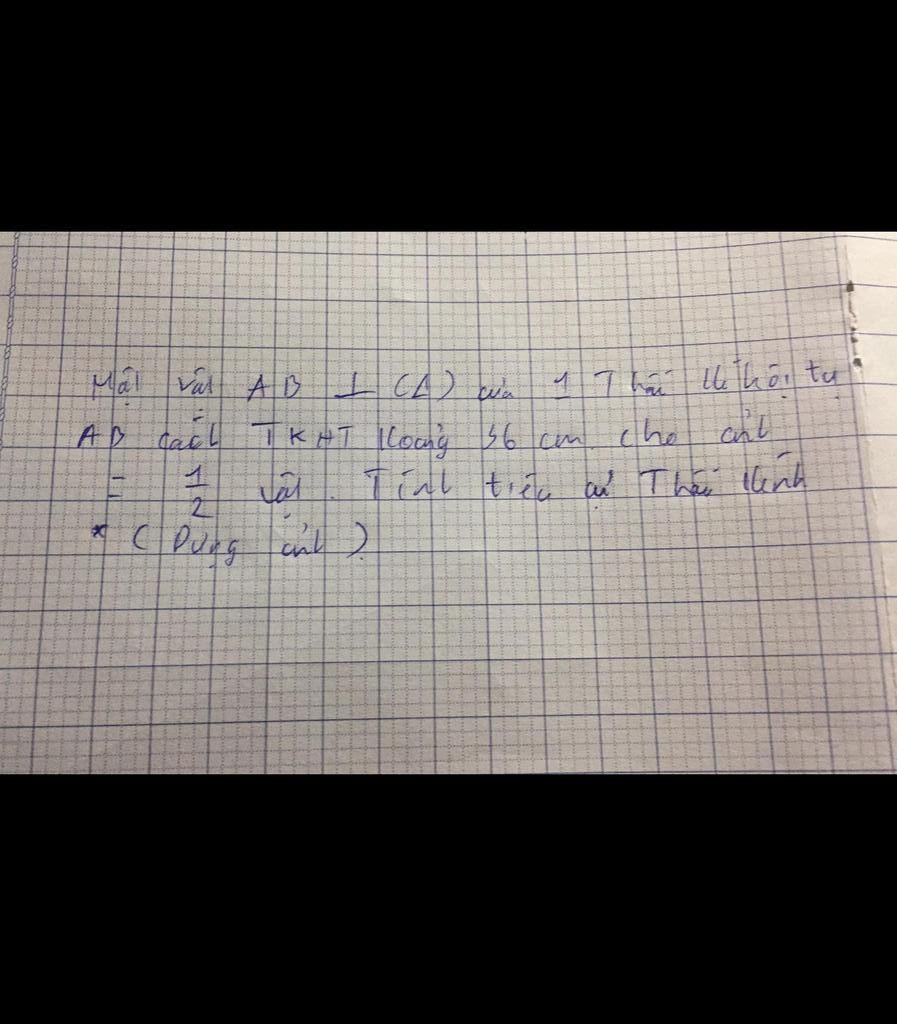 Một vật AB ⊥ (Δ) của 1 Thấu kính hội tụ
AB cách TKHT khoảng 36 cm cho ảnh
= 1/2 vật. Tính tiêu cự Thấu kính
* (Dựng ảnh).